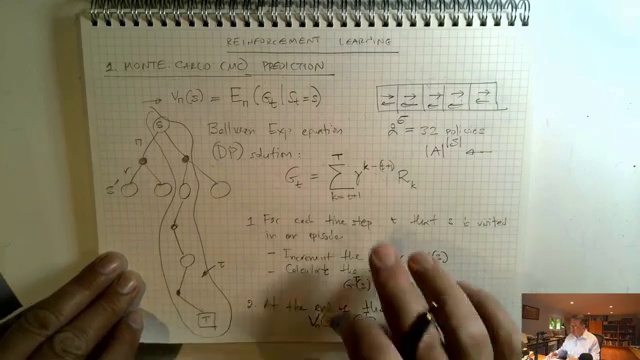 REINFORCEMENT LEARNING
1. MONTE-CARLO (MC) PREDICTION
→ Vπ(s) = Eπ(Gt | St=s)
Bellman Exp. equation
(DP) solution:
2^5 = 32 policies
|A|^|S| ←
Gt = Σ γ^k-(t+1) Rk
T
k=t+1
S
π
r
s'
T
T
1 For each time step t that s is visited
in an episode
- Increment the (s)
- Calculate the
2 At the end of the